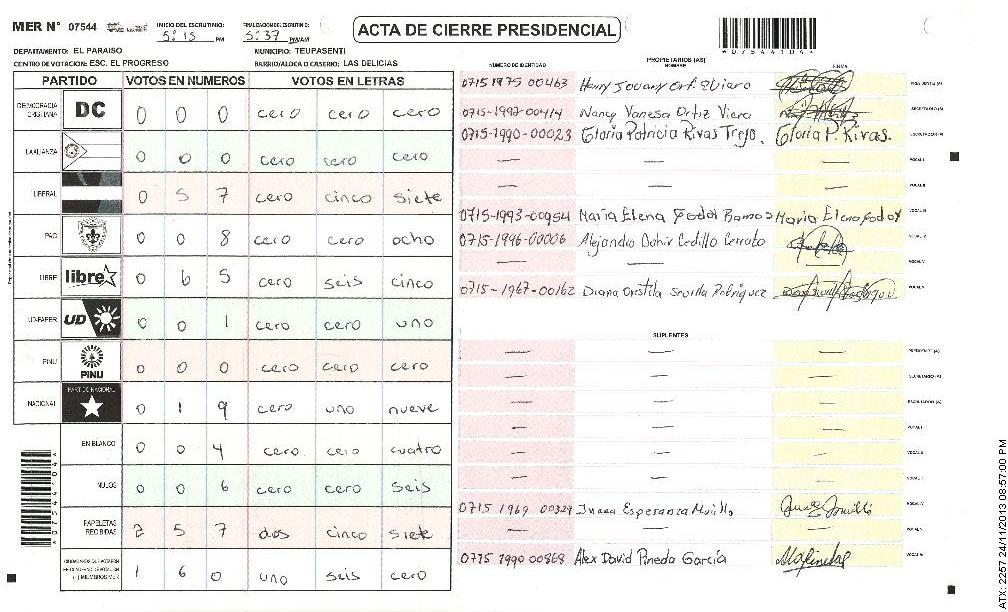 MER N° 07544 INICIO DEL ESCRUTINIO: 5:15 PM FINALIZACION DEL ESCRUTINIO: 5:37 PM/AM
ACTA DE CIERRE PRESIDENCIAL
*07544104*
DEPARTAMENTO: EL PARAISO MUNICIPIO: TEUPASENTI
CENTRO DE VOTACION: ESC. EL PROGRESO BARRIO/ALDEA O CASERIO: LAS DELICIAS
PARTIDO VOTOS EN NUMEROS VOTOS EN LETRAS
DEMOCRACIA CRISTIANA DC 0 0 0 cero cero cero
LA ALIANZA 0 0 0 cero cero cero
LIBERAL 0 5 7 cero cinco siete
PAC 0 0 8 cero cero ocho
LIBRE libre 0 6 5 cero seis cinco
UD-FAPER UD 0 0 1 cero cero uno
PINU PINU 0 0 0 cero cero cero
NACIONAL PARTIDO NACIONAL 0 1 9 cero uno nueve
EN BLANCO 0 0 4 cero cero cuatro
NULOS 0 0 6 cero cero seis
PAPELETAS RECIBIDAS 2 5 7 dos cinco siete
1 6 0 uno seis cero
*07544104*
PROPIETARIOS (AS)
NUMERO DE IDENTIDAD NOMBRE FIRMA
0715 1975 00463 Henry Jovany
0715-1992-00414 Nancy Vanesa Ortiz Viera SECRETARIO (A)
0715-1990-00023 Gloria Patricia Rivas Trejo. Gloria P. Rivas. ESCRUTADOR (A)
— — — VOCAL I
— — — VOCAL II
0715-1993-00954 Maria Elena Ramos VOCAL III
0715-1946-00006 Alejandro Cedillo Cerrato VOCAL IV
— — — VOCAL V
0715-1967-00162 Diana Sevilla Rodriguez
SUPLENTES
— — — PRESIDENTE (A)
— — — SECRETARIO (A)
— — — ESCRUTADOR (A)
— — — VOCAL I
— — — VOCAL II
— — — VOCAL III
0715 1969 00329 Juana Esperanza VOCAL IV
— — — VOCAL V
0715 1990 00868 Alex David Pineda García
ATX: 2257 24/11/2013 08:57:00 PM